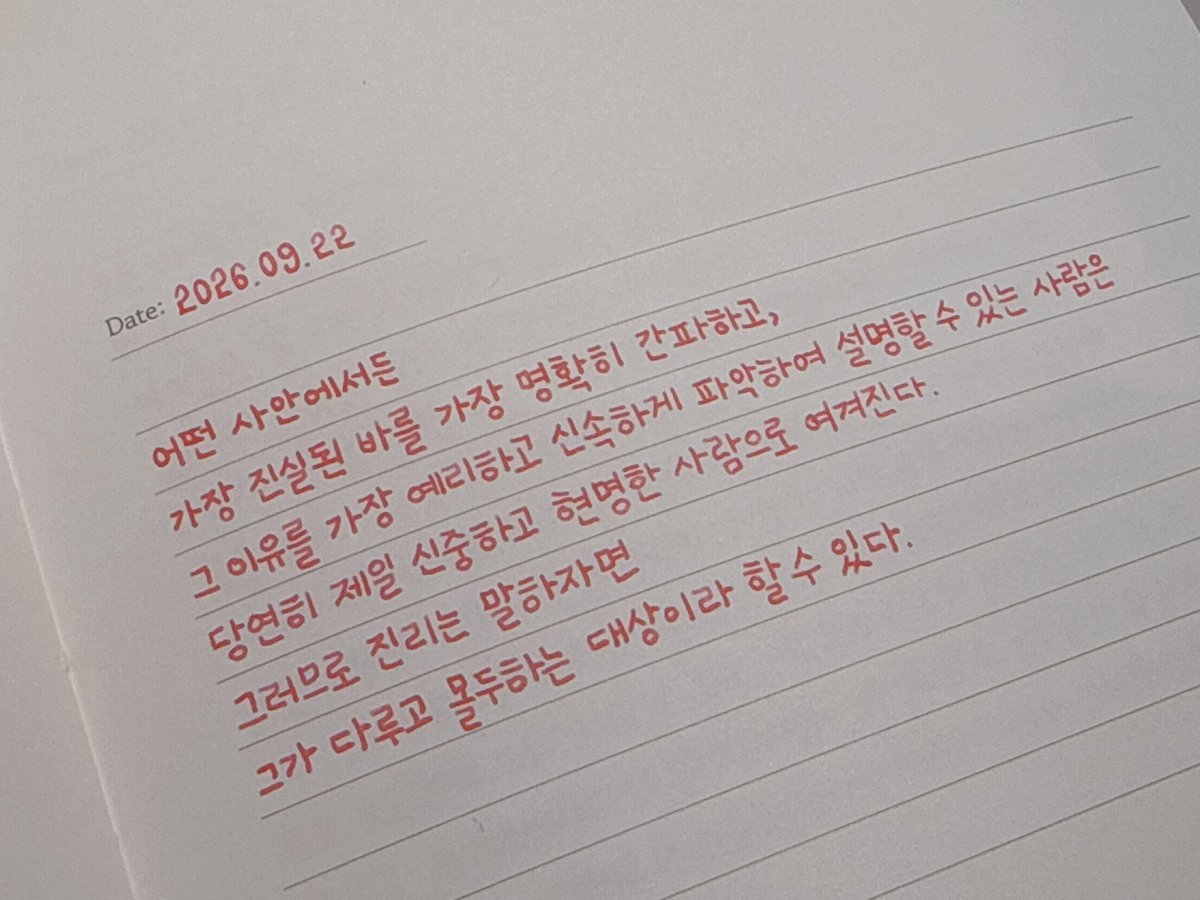 Date: 2026.09.22
어떤 사안에서든
가장 진실된 바를 가장 명확히 간파하고,
그 이유를 가장 예리하고 신속하게 파악하여 설명할 수 있는 사람은
당연히 제일 신중하고 현명한 사람으로 여겨진다.
그러므로 진리는 말하자면
그가 다루고 몰두하는 대상이라 할 수 있다.